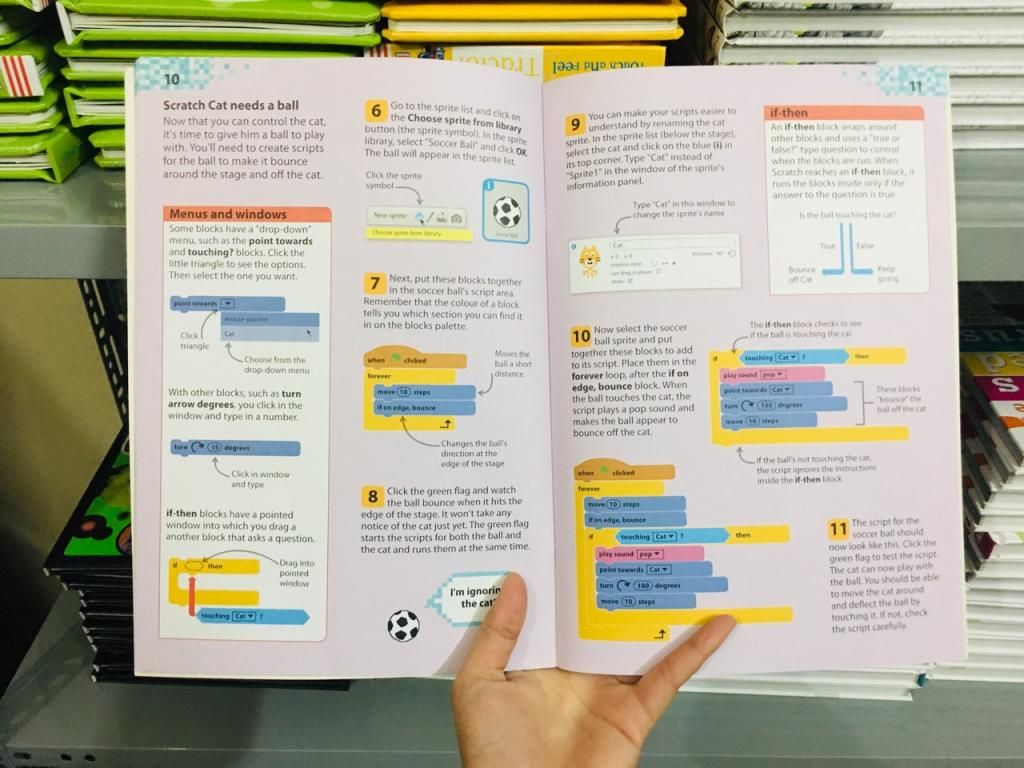 Touch and Feel
Tractor
10
Scratch Cat needs a ball
Now that you can control the cat,
it's time to give him a ball to play
with. You'll need to create scripts
for the ball to make it bounce
around the stage and off the cat.
Menus and windows
Some blocks have a "drop-down"
menu, such as the point towards
and touching? blocks. Click the
little triangle to see the options.
Then select the one you want.
point towards
mouse-pointer
Cat
Click
triangle
Choose from the
drop-down menu
With other blocks, such as turn
arrow degrees, you click in the
window and type in a number.
turn 15 degrees
Click in window
and type
if-then blocks have a pointed
window into which you drag a
another block that asks a question.
if then
Drag into
pointed
window
touching Cat ?
6 Go to the sprite list and click on
the Choose sprite from library
button (the sprite symbol). In the sprite
library, select "Soccer Ball" and click OK.
The ball will appear in the sprite list.
Click the sprite
symbol
New sprite:
Choose sprite from library
Soccer Ball
7 Next, put these blocks together
in the soccer ball's script area.
Remember that the colour of a block
tells you which section you can find it
in on the blocks palette.
when clicked
forever
move 10 steps
if on edge, bounce
Moves the
ball a short
distance
Changes the ball's
direction at the
edge of the stage
8 Click the green flag and watch
the ball bounce when it hits the
edge of the stage. It won't take any
notice of the cat just yet. The green flag
starts the scripts for both the ball and
the cat and runs them at the same time.
I'm ignoring
the cat!
11
9 You can make your scripts easier to
understand by renaming the cat
sprite. In the sprite list (below the stage),
select the cat and click on the blue (i) in
its top corner. Type "Cat" instead of
"Sprite1" in the window of the sprite's
information panel.
Type "Cat" in this window to
change the sprite's name
Cat
x: 0 y: 0 direction: 90°
rotation style:
can drag in player:
show:
if-then
An if-then block wraps around
other blocks and uses a "true or
false?" type question to control
when the blocks are run. When
Scratch reaches an if-then block, it
runs the blocks inside only if the
answer to the question is true.
Is the ball touching the cat?
True False
Bounce
off Cat
Keep
going
10 Now select the soccer
ball sprite and put
together these blocks to add
to its script. Place them in the
forever loop, after the if on
edge, bounce block. When
the ball touches the cat, the
script plays a pop sound and
makes the ball appear to
bounce off the cat.
The if-then block checks to see
if the ball is touching the cat
if touching Cat ? then
play sound pop
point towards Cat
turn 180 degrees
move 10 steps
These blocks
"bounce" the
ball off the cat
If the ball's not touching the cat,
the script ignores the instructions
inside the if-then block
when clicked
forever
move 10 steps
if on edge, bounce
if touching Cat ? then
play sound pop
point towards Cat
turn 180 degrees
move 10 steps
11 The script for the
soccer ball should
now look like this. Click the
green flag to test the script.
The cat can now play with
the ball. You should be able
to move the cat around
and deflect the ball by
touching it. If not, check
the script carefully.